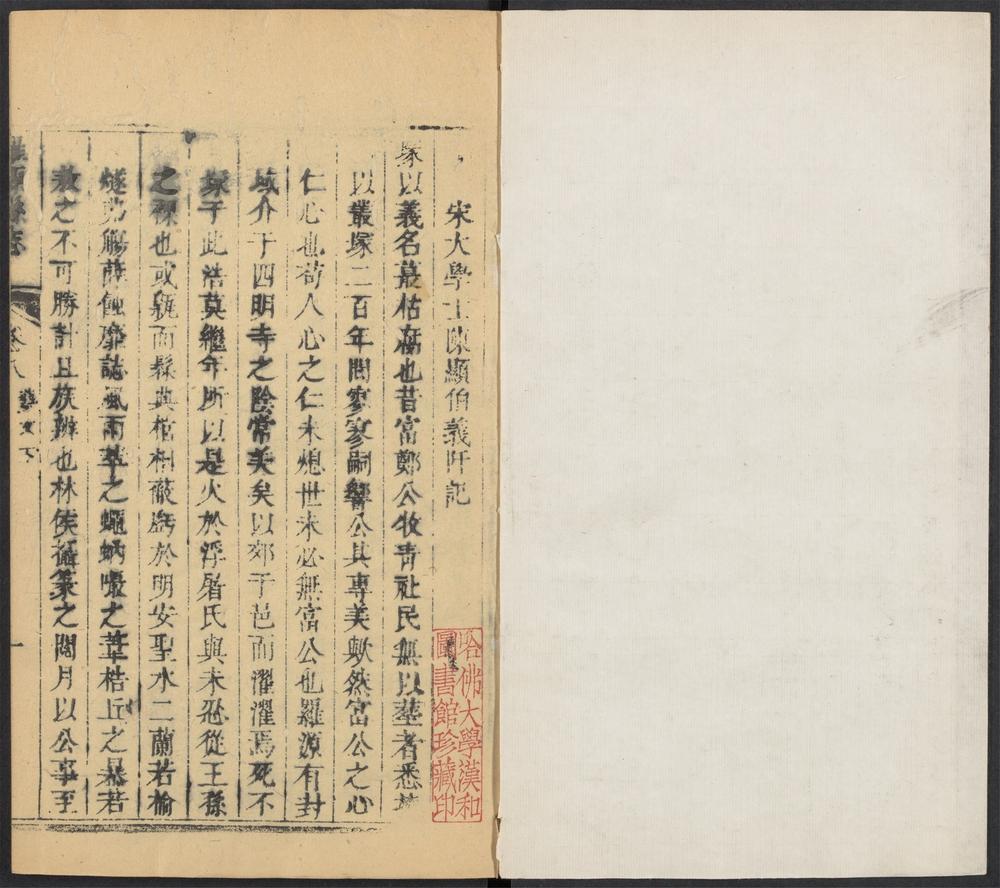 宋大學士陳顯伯義阡記
冢以義名葬枯腐也昔富鄭公牧靑社民無以塟者悉
以叢塚二百年間寥寥嗣響公其專美歟然富公之心
仁心也苟人心之仁未熄世未必無富公也羅源有封
域介于四明寺之陰常美矣以郊于邑而濯濯焉死不
于此浩莫繼年所以是火於浮屠氏與未忍從王孫
之裸也或甎而縣與棺相蔽於明安聖水二蘭若
燧蝕風雨之蠅蚋嘬之丘之暴若
赦之不可勝計且族辨也林侯攝篆之閱月以公事至
羅源縣志
卷八
藝文下
一
哈佛大學漢和
圖書館珍藏印